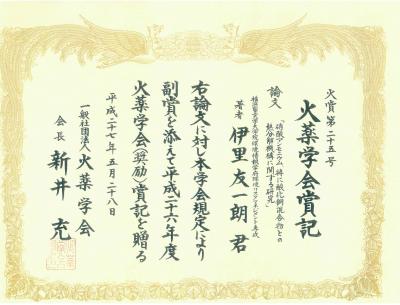 火賞第二十五号
火薬学会賞記
論文
「硝酸アンモニウム、特に酸化銅混合物との
熱分解機構に関する研究」
著者
伊里友一朗 君
右論文に対し本学会規定により
副賞を添えて平成二十六年度
火薬学会(奨励)賞記を贈る
平成二十七年五月二十八日
一般社団法人火薬学会
会長 新井 充